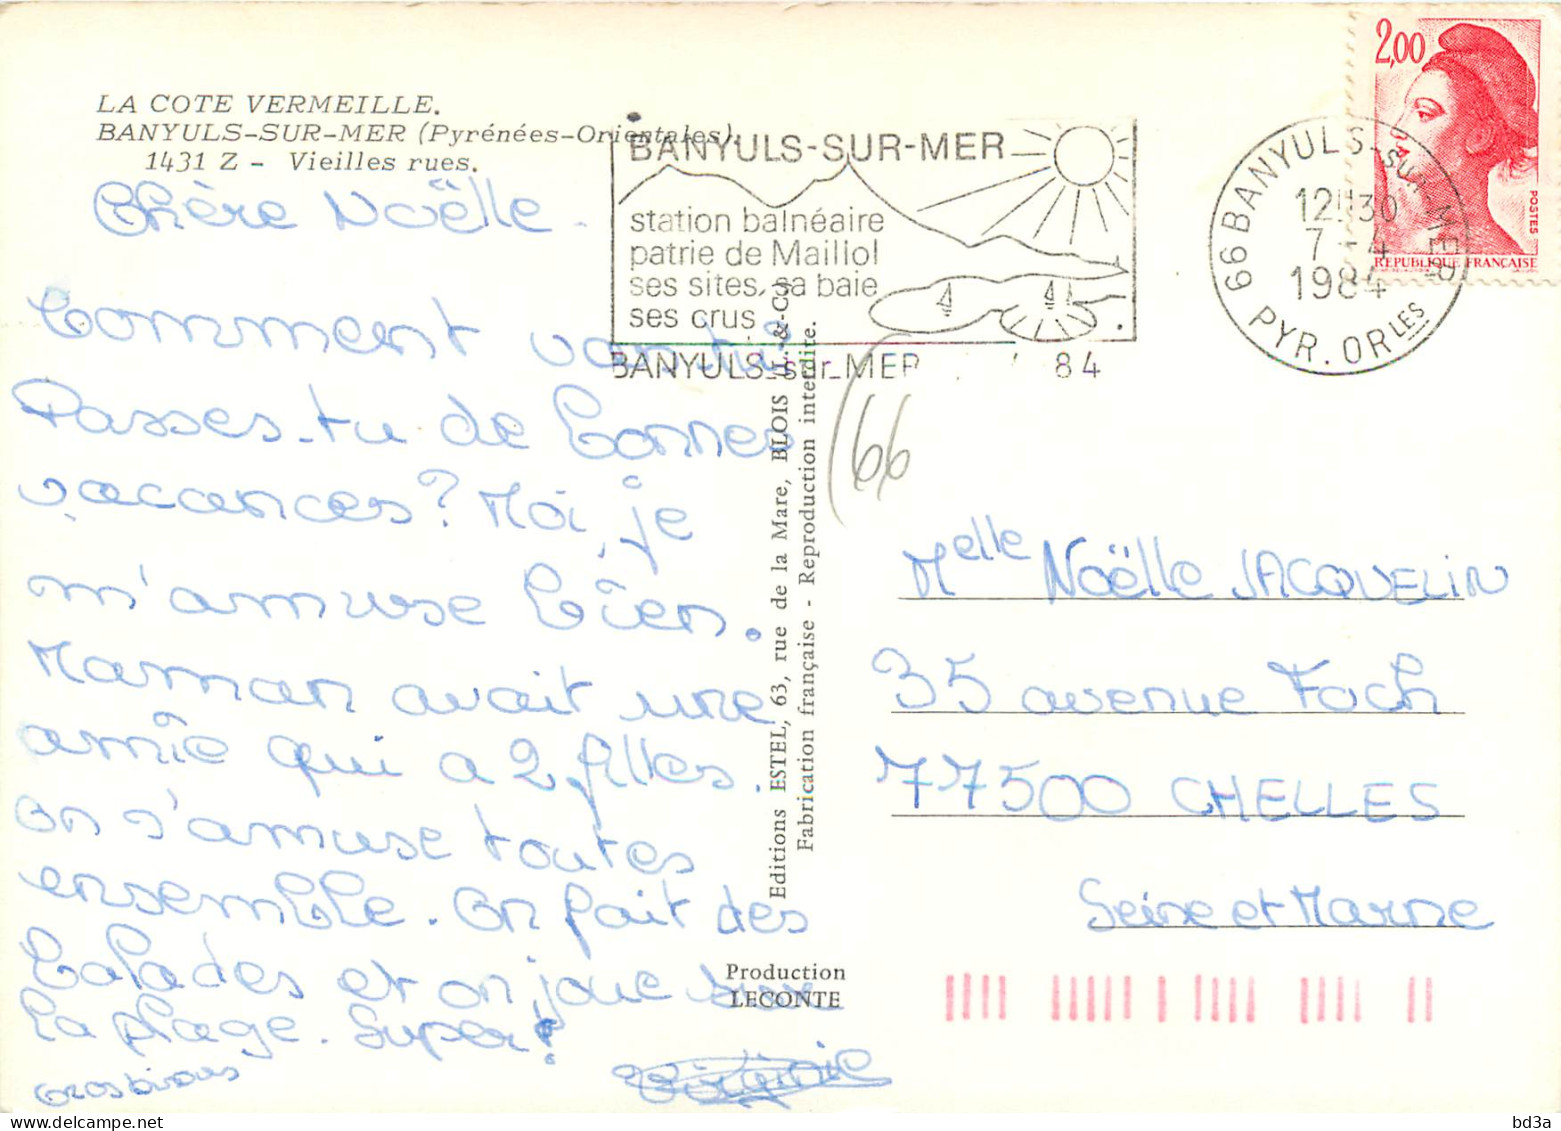 LA COTE VERMEILLE.
BANYULS-SUR-MER (Pyrénées-Orientales).
1431 Z - Vieilles rues.
BANYULS-SUR-MER
station balnéaire
patrie de Maillol
ses sites, sa baie
ses crus
BANYULS-sur-MER 84
66 BANYULS-SUR-MER
12H30
7-4
1984
PYR. ORLES
2,00
POSTES
REPUBLIQUE FRANÇAISE
Chère Noëlle.
Comment vas-tu?
Passes-tu de bonnes
vacances? Moi, je
m'amuse bien.
Maman avait une
amie qui a 2 filles.
on s'amuse toutes
ensemble. on fait des
balades et on joue sur
la plage. Super!
Gros bisous
Virginie
(66
Editions ESTEL, 63, rue de la Mare, BLOIS (L.-&-C.)
Fabrication française - Reproduction interdite.
Production
LECONTE
Melle Noëlle JACQUELIN
35 avenue Foch
77500 CHELLES
Seine et Marne
delcampe.net
bd3a